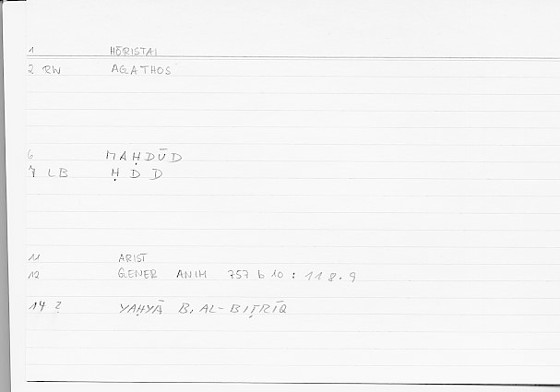 1 HŌRISTAI
2 RW AGATHOS
6 MAḤDŪD
7 LB Ḥ D D
11 ARIST
12 GENER ANIM 757 b 10 : 118.9
14 2 YAḤYĀ B. AL-BIṬRĪQ